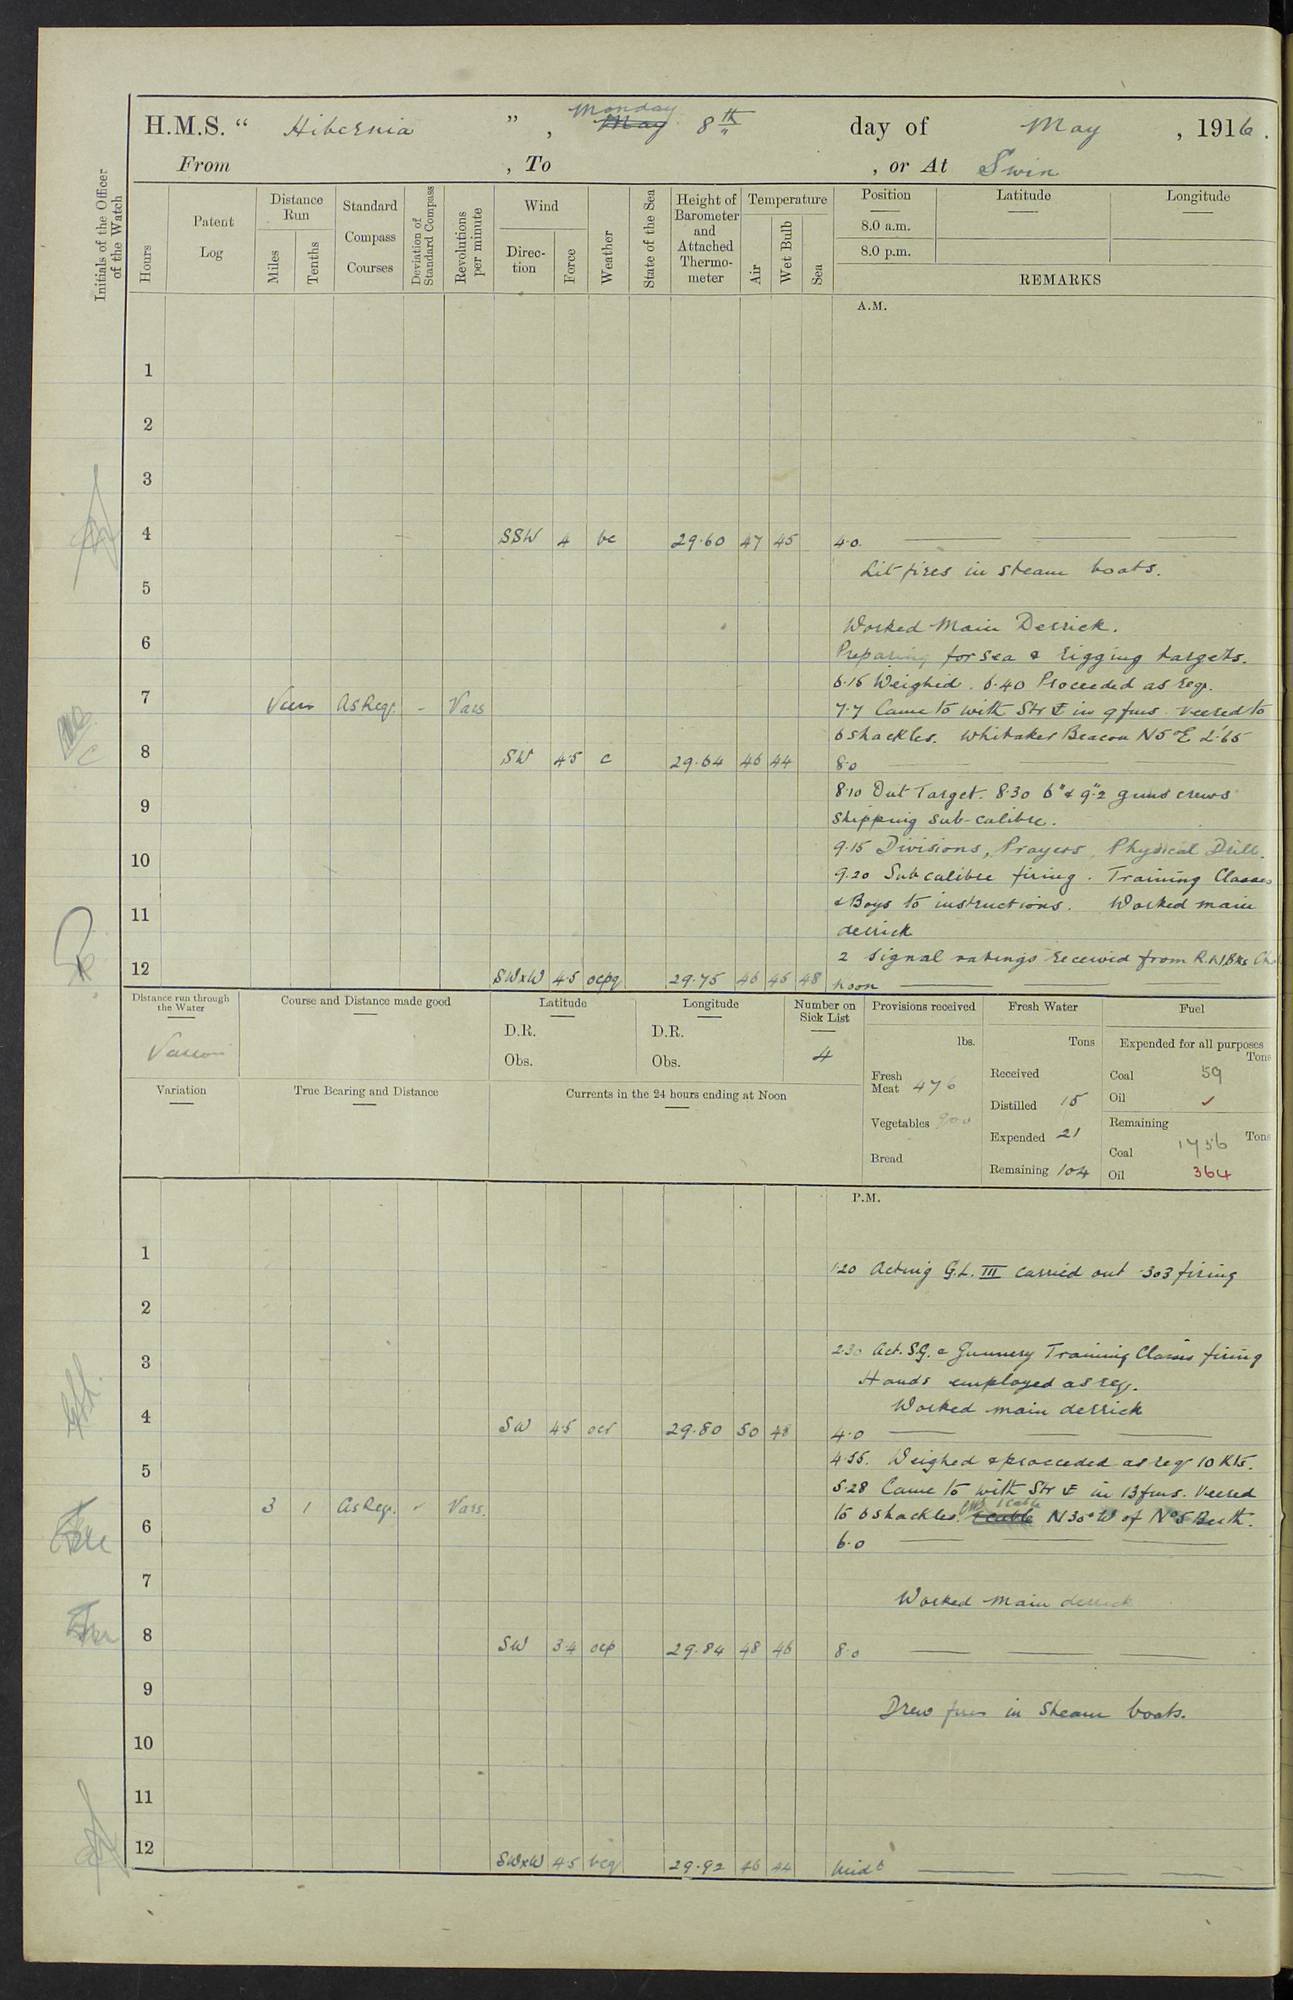 H.M.S. " Hibernia " , Monday May 8th day of May , 1916.
From , To , or At Swin
Initials of the Officer of the Watch
Hours
Patent Log
Distance Run
Miles
Tenths
Standard Compass Courses
Deviation of Standard Compass
Revolutions per minute
Wind
Direction
Force
Weather
State of the Sea
Height of Barometer and Attached Thermometer
Temperature
Air
Wet Bulb
Sea
Position Latitude Longitude
8.0 a.m.
8.0 p.m.
REMARKS
A.M.
1
2
3
4 SSW 4 bc 29.60 47 45 4.0.
Lit fires in steam boats.
5
Worked Main Derrick.
6
Preparing for sea & rigging targets.
6.15 Weighed. 6.40 Proceeded as req.
7 As Req. - Vars 7.7 Came to with Str in 9 fms. veered to
6 shackles. Whitaker Beacon N5°E 2'.65
8 SW 4.5 c 29.64 46 44 8.0
8.10 Out Target. 8.30 6" & 9".2 guns crews
9 shipping sub-calibre.
9.15 Divisions, Prayers, Physical Drill.
10 9.20 Sub calibre firing. Training Classes
11 & Boys to instructions. Worked main
derrick
12 2 signal ratings received from R.N. Bks
SWxW 4.5 ocpq 29.75 46 45 48 Noon
Distance run through the Water
Various
Course and Distance made good
Latitude
D.R.
Obs.
Longitude
D.R.
Obs.
Number on Sick List
4
Variation
True Bearing and Distance
Currents in the 24 hours ending at Noon
Provisions received
lbs.
Fresh Meat 476
Vegetables 900
Bread
Fresh Water
Tons
Received
Distilled 15
Expended 21
Remaining 104
Fuel
Expended for all purposes
Tons
Coal 59
Oil ✓
Remaining
Tons
Coal 1756
Oil 364
P.M.
1
1.20 Acting G.L. III carried out .303 firing
2
3 2.30 Act. S.G. & Gunnery Training Classes firing
Hands employed as req.
4 Worked main derrick
SW 4.5 ocr 29.80 50 48 4.0
5 4.55. Weighed & proceeded as req 10 Kts.
3 1 As Req. - Vars. 5.28 Came to with Str in 13 fms. Veered
6 to 6 shackles. 1 cable N30°W of No 5 Berth.
6.0
7
Worked main derrick
8 SW 3.4 ocp 29.84 48 46 8.0
9
Drew fires in steam boats.
10
11
12 SWxW 4.5 bcq 29.92 46 44 Midt